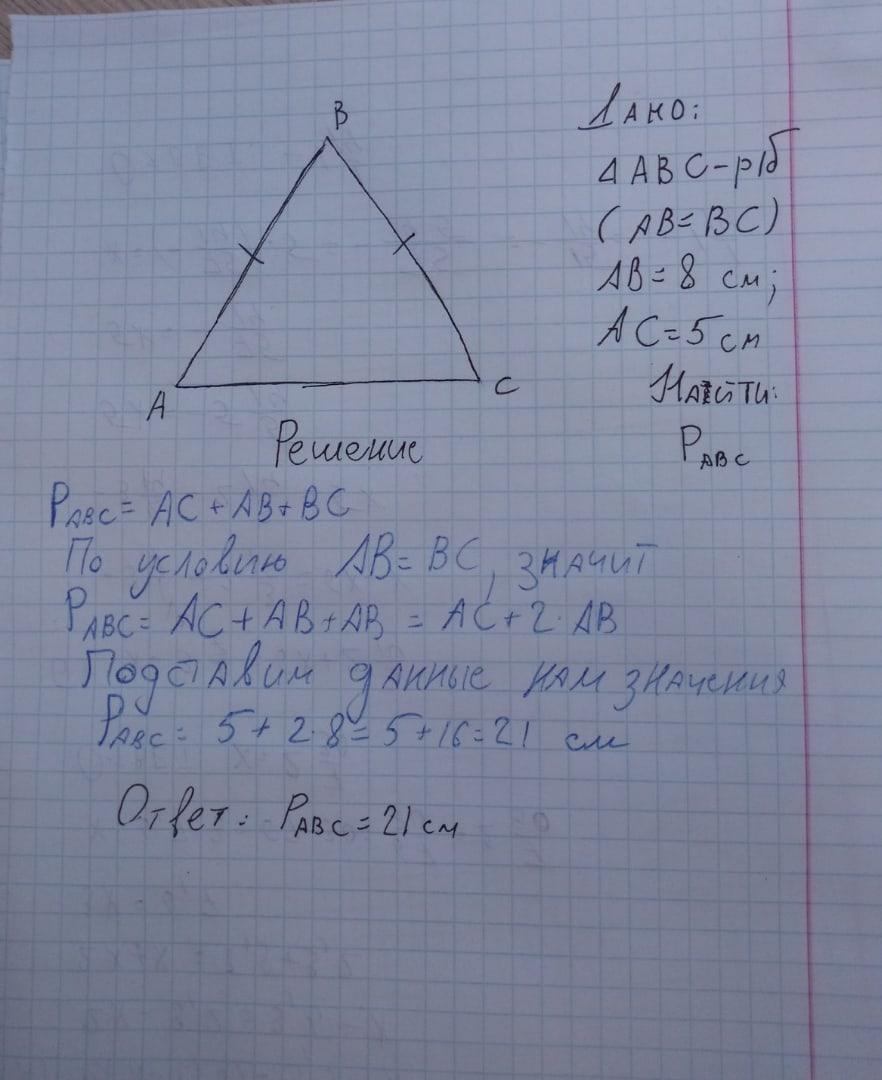 B
A
C
Дано:
△ABC-р/б
(AB=BC)
AB=8 см;
AC=5 см
Найти:
PABC
Решение
PABC= AC+AB+BC
По условию AB=BC, значит
PABC= AC+AB+AB = AC+2·AB
Подставим данные нам значения
PABC= 5+2·8=5+16=21 см
Ответ: PABC=21 см